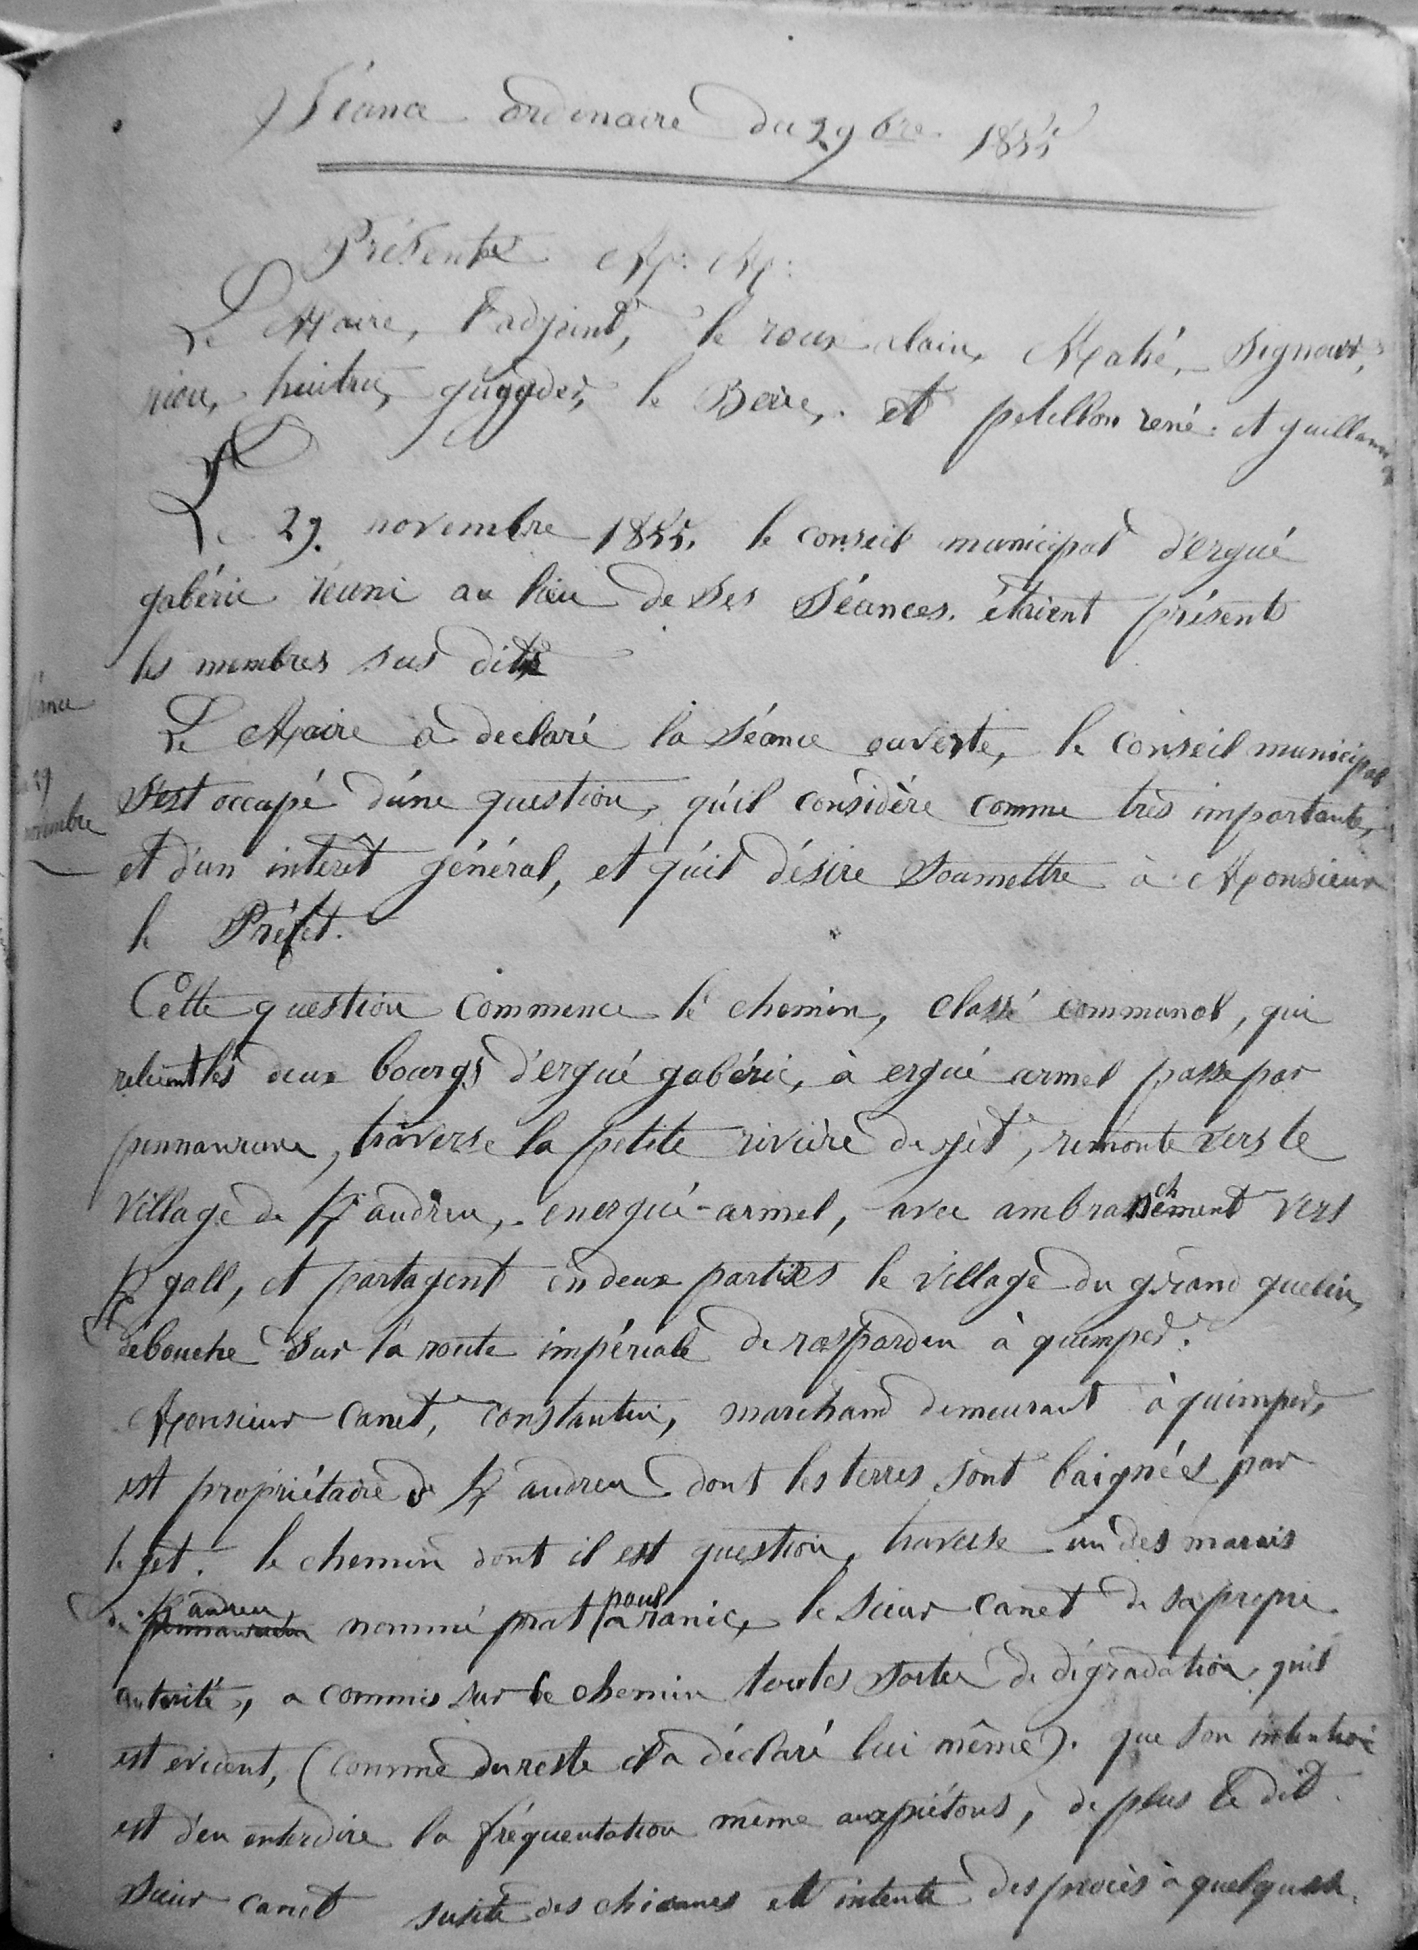 Séance ordinaire du 29 bre 1855
Présents M. M:
Le Maire, l'adjoint, le roux alain, Mahé, Signour,
riou, huitric, guyader, le Berre, et petillon rené et guillaume
Le 29. novembre 1855, le conseil municipal d'ergué
gabéric réuni au lieu de ses Séances. étaient présents
les membres sus dits
Séance
du 29
novembre
Le Maire a declaré la Séance ouverte, le conseil municipal
s'est occupé d'une question, qu'il considère comme très importante,
et d'un intérêt général, et qu'il désire soumettre à Monsieur
le Préfet.
Cette question commence le chemin, classé communal, qui
relient les deux bourgs d'ergué gabéric, à ergué armel passe par
pennanrun, traverse la petite rivière du jet, remonte vers le
village de K andreu, en ergué-armel, avec ambranchement vers
K gall, et partagent en deux parties le village du grand guelin,
débouche sur la route impériale de rosporden à quimper.
Monsieur Canet, Constantin, marchand demeurant à quimper,
est propriétaire de K andreu dont les terres sont baignées par
le jet. le chemin dont il est question, traverse un des marais
de K andreu nommé prat poul ranic, le sieur canet de sa propre
autorité, a commis sur le chemin toutes sortes de dégradation, qu'il
est evident, (comme du reste il a déclaré lui même). que son intention
est d'en enterdire la fréquentation même aux piétons, de plus le dit
sieur canet susite des chicanes et intente des procès à quelques